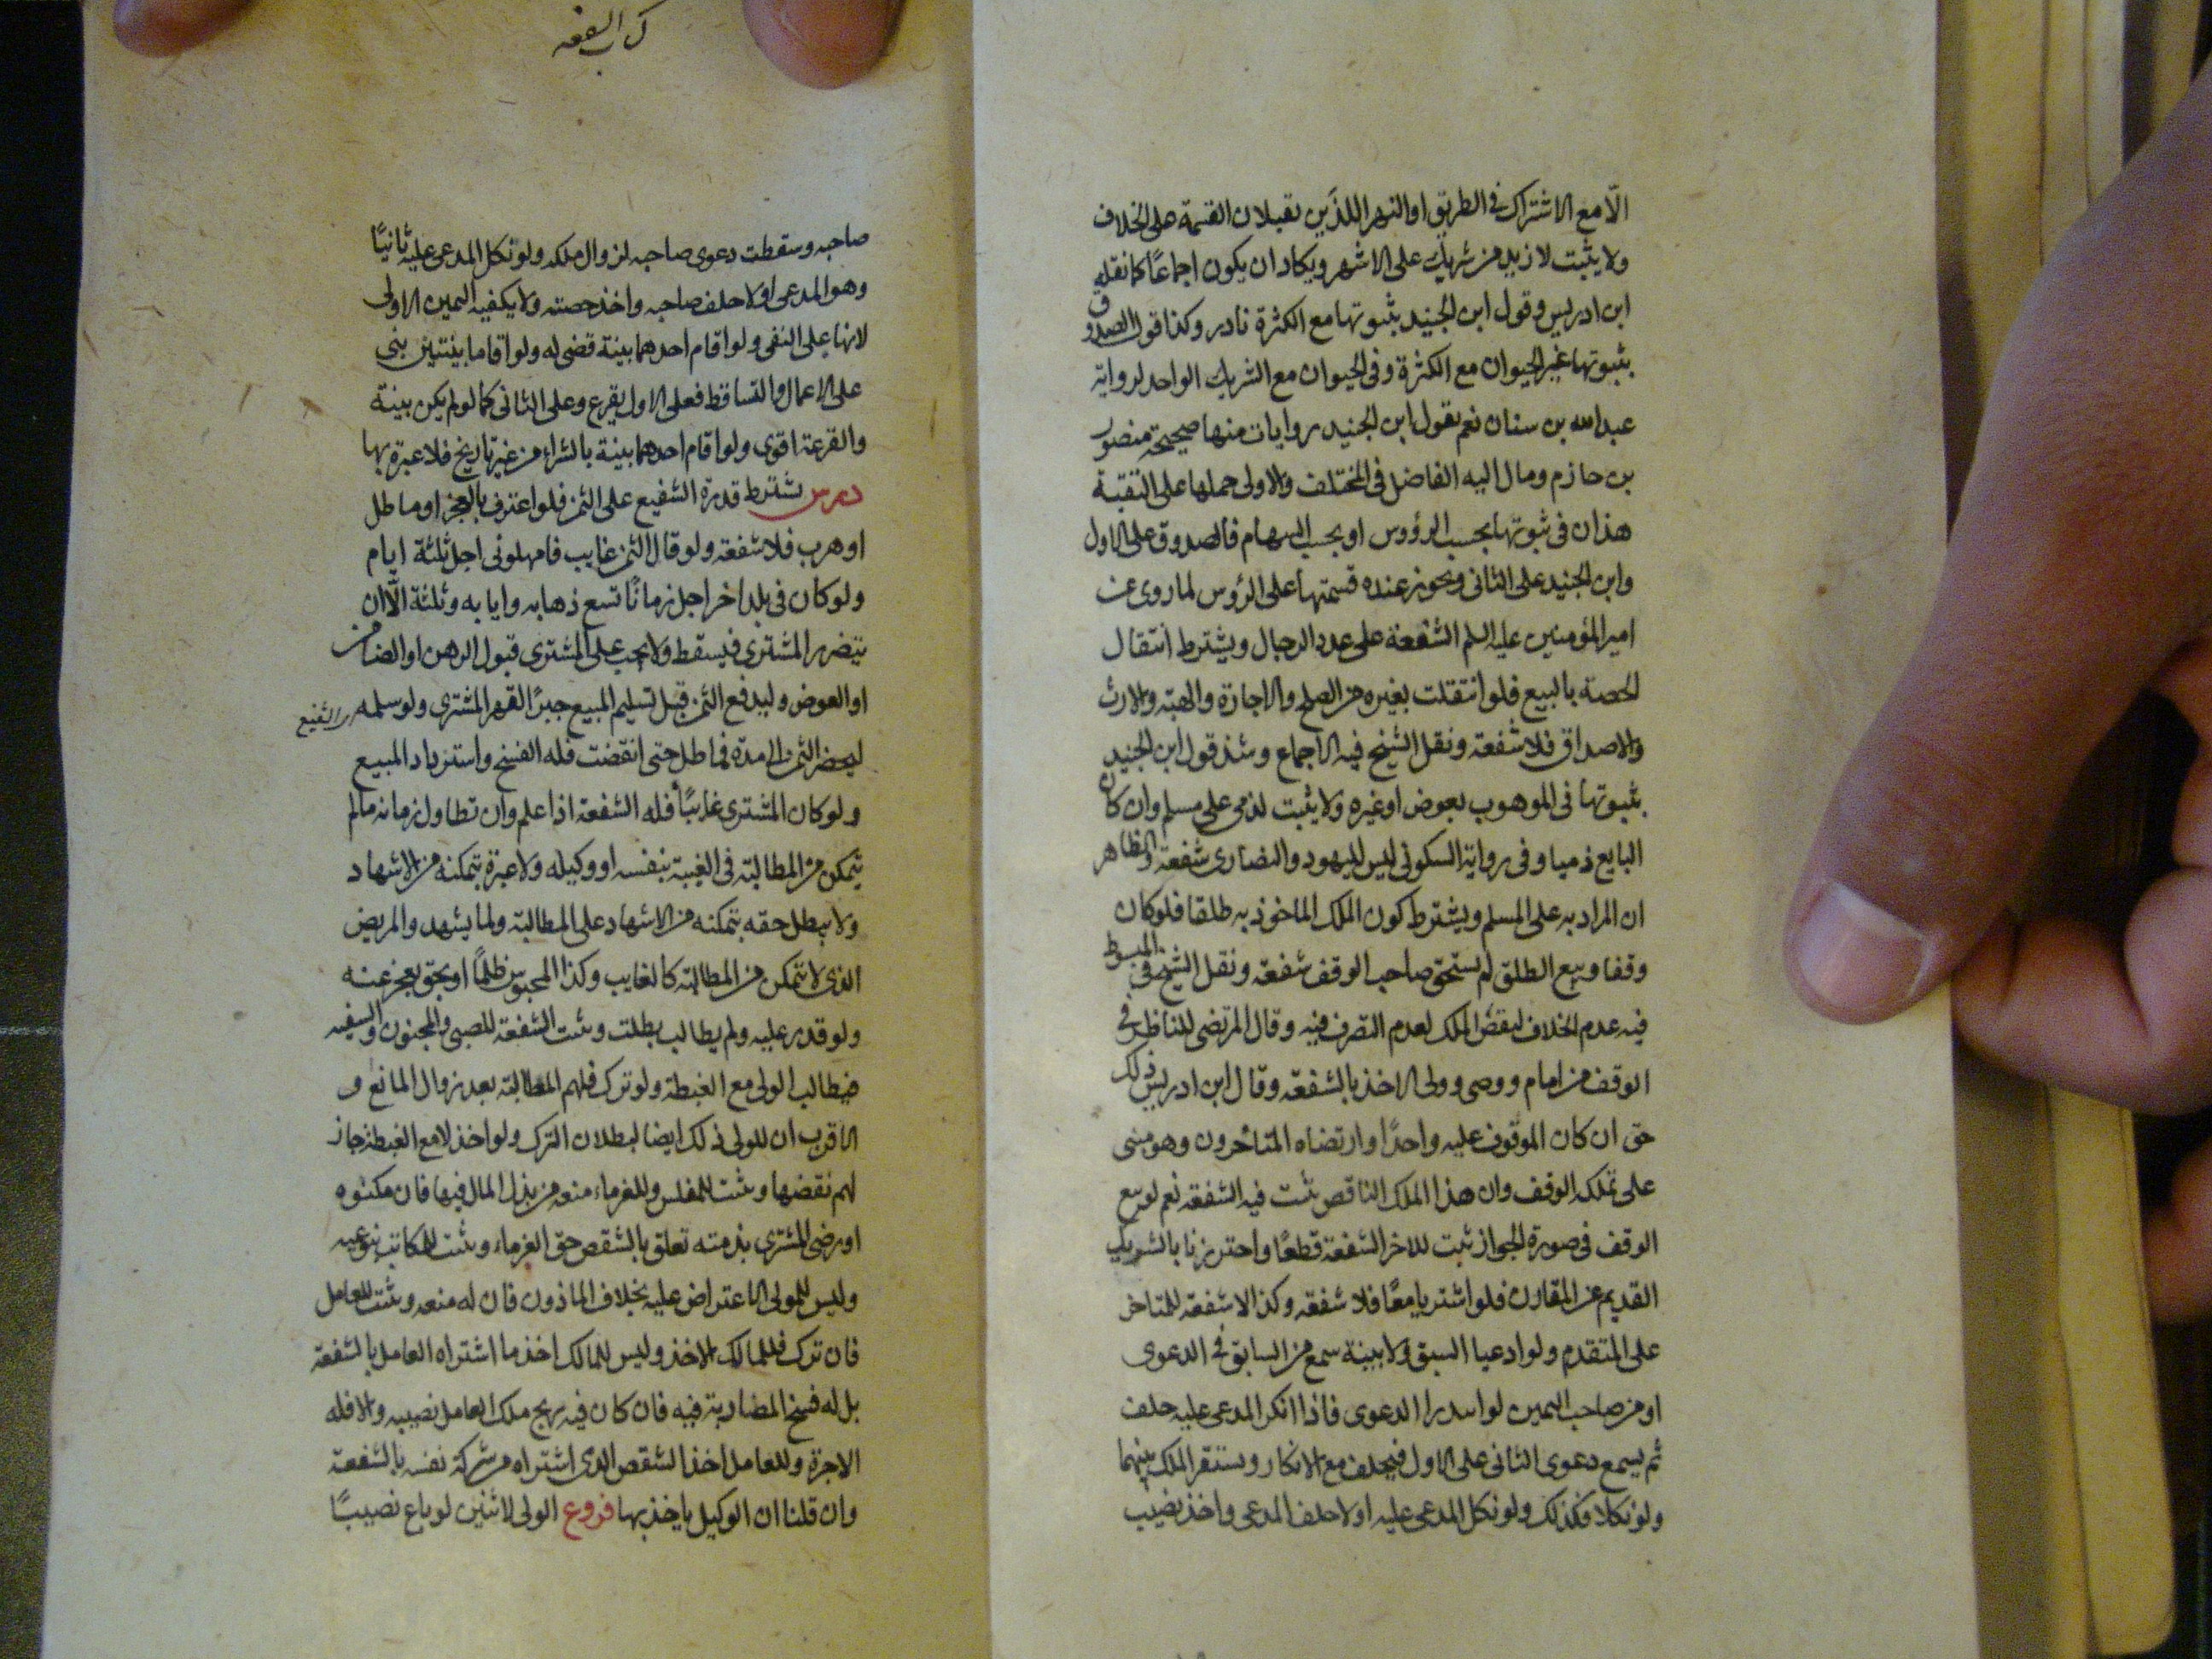 الّا مع الاشتراك فى الطريق او النهر اللذين يقبلان القسمة على الخلاف
ولا يثبت لازيد من شريك على الاشهر ويكاد ان يكون اجماعًا كما نقله
ابن ادريس وقول ابن الجنيد بثبوتها مع الكثرة نادر وكذا قول الصدوق
بثبوتها غير الحيوان مع الكثرة وفى الحيوان مع الشريك الواحد لرواية
عبد الله بن سنان نعم بقول ابن الجنيد روايات منها صحيحة منصور
بن حازم ومال اليه الفاضل فى المختلف والاولى حملها على التقية
هذان فى ثبوتها بحسب الرؤوس او بحسب السهام فالصدوق على الاول
وابن الجنيد على الثانى ويجوز عنده قسمتها على الرؤس لما روى عن
امير المؤمنين عليه السلم الشفعة على عدد الرجال ويشترط انتقال
الحصة بالبيع فلو انتقلت بغيره من الصلح والاجارة والهبة والارث
والاصداق فلا شفعة ونقل الشيخ فيه الاجماع وشذ قول ابن الجنيد
بثبوتها فى الموهوب بعوض او غيره ولا يثبت لذمى على مسلم وان كان
البايع ذميا وفى رواية السكونى ليس لليهود والنصارى شفعة والظاهر
ان المراد به على المسلم ويشترط كون الملك الماخوذ به طلقا فلو كان
وقفا وبيع الطلق لم يستحق صاحب الوقف شفعة ونقل الشيخ فى المبسوط
فيه عدم الخلاف لنقض الملك لعدم التصرف فيه وقال المرتضى للناظر فى
الوقف من امام ووصى وولى الاخذ بالشفعة وقال ابن ادريس ذلك
حق ان كان الموقوف عليه واحدًا وارتضاه المتأخرون وهو مبنى
على تملك الوقف وان هذا الملك الناقص يثبت فيه الشفعة نعم لو بيع
الوقف فى صورة الجواز ثبت للاخر الشفعة قطعًا واحترزنا بالشريك
القديم عن المقارن فلو اشتريا معًا فلا شفعة وكذا لا شفعة للمتاخر
على المتقدم ولو ادعيا السبق ولا بينة سمع من السابق فى الدعوى
او من صاحب اليمين لو ابتدرا الدعوى فاذا انكر المدعى عليه حلف
ثم يسمع دعوى الثانى على الاول فيحلف مع الانكار ويستقر الملك بينهما
ولو نكلا فكذلك ولو نكل المدعى عليه اولا حلف المدعى واخذ نصيب
كتاب الشفعه
صاحبه وسقطت دعوى صاحبه لزوال ملكه ولو نكل المدعى عليه ثانيًا
وهو المدعى اولا حلف صاحبه واخذ حصته ولا يكفيه اليمين الاولى
لانها على النفى ولو اقام احدهما بينة قضى له ولو اقاما بينتين بنى
على الاعمال والتساقط فعلى الاول يقرع وعلى الثانى كما لو لم يكن بينة
والقرعة اقوى ولو اقام احدهما بينة بالشراء من غير تاريخ فلا عبرة بها
درس يشترط قدرة الشفيع على الثمن فلو اعترف بالعجز او ماطل
او هرب فلا شفعة ولو قال الثمن غايب فامهلونى اجل ثلثة ايام
ولو كان فى بلد اخر اجل زمانًا تسع ذهابه وايابه وثلثة الّا ان
يتضرر المشترى فيسقط ولا يجب على المشترى قبول الرهن او الضامن
او العوض وليدفع الثمن قبل تسليم المبيع جبرًا لقهر المشترى ولو سلمه الشفيع
ليحضر الثمن الى مدة فماطل حتى انقضت فله الفسخ واسترداد المبيع
ولو كان المشترى غائبًا فله الشفعة اذا علم وان تطاول زمانه مالم
يتمكن من المطالبة فى الغيبة بنفسه او وكيله ولا عبرة بتمكنه من الاشهاد
ولا يبطل حقه بتمكنه من الاشهاد على المطالبة ولما يشهد والمريض
الذى لا يتمكن من المطالبة كالغايب وكذا المحبوس ظلمًا او بحق يعجز عنه
ولو قدر عليه ولم يطالب بطلت ويثبت الشفعة للصبى والمجنون والسفيه
فيطالب الولى مع الغبطة ولو ترك فلهم المطالبة بعد زوال المانع و
الاقرب ان للولى ذلك ايضا لبطلان الترك ولو اخذ لا مع الغبطة جاز
لهم نقضها ويثبت للمفلس وللغرماء منعه من بذل المال فيها فان مكنوه
او رضى المشترى بذمته تعلق بالشقص حق الغرماء ويثبت للمكاتب بنوعيه
وليس للمولى الاعتراض عليه بخلاف الماذون فان له منعه ويثبت للعامل
فان ترك فللمالك الاخذ وليس للمالك اخذ ما اشتراه العامل بالشفعة
بل له فسخ المضاربة فيه فان كان فيه ربح ملك العامل نصيبه والا فله
الاجرة وللعامل اخذ الشقص الذى اشتراه من شركة نفسه بالشفعة
وان قلنا ان الوكيل ياخذ بها فروع الولى لاثنين لو باع نصيبًا